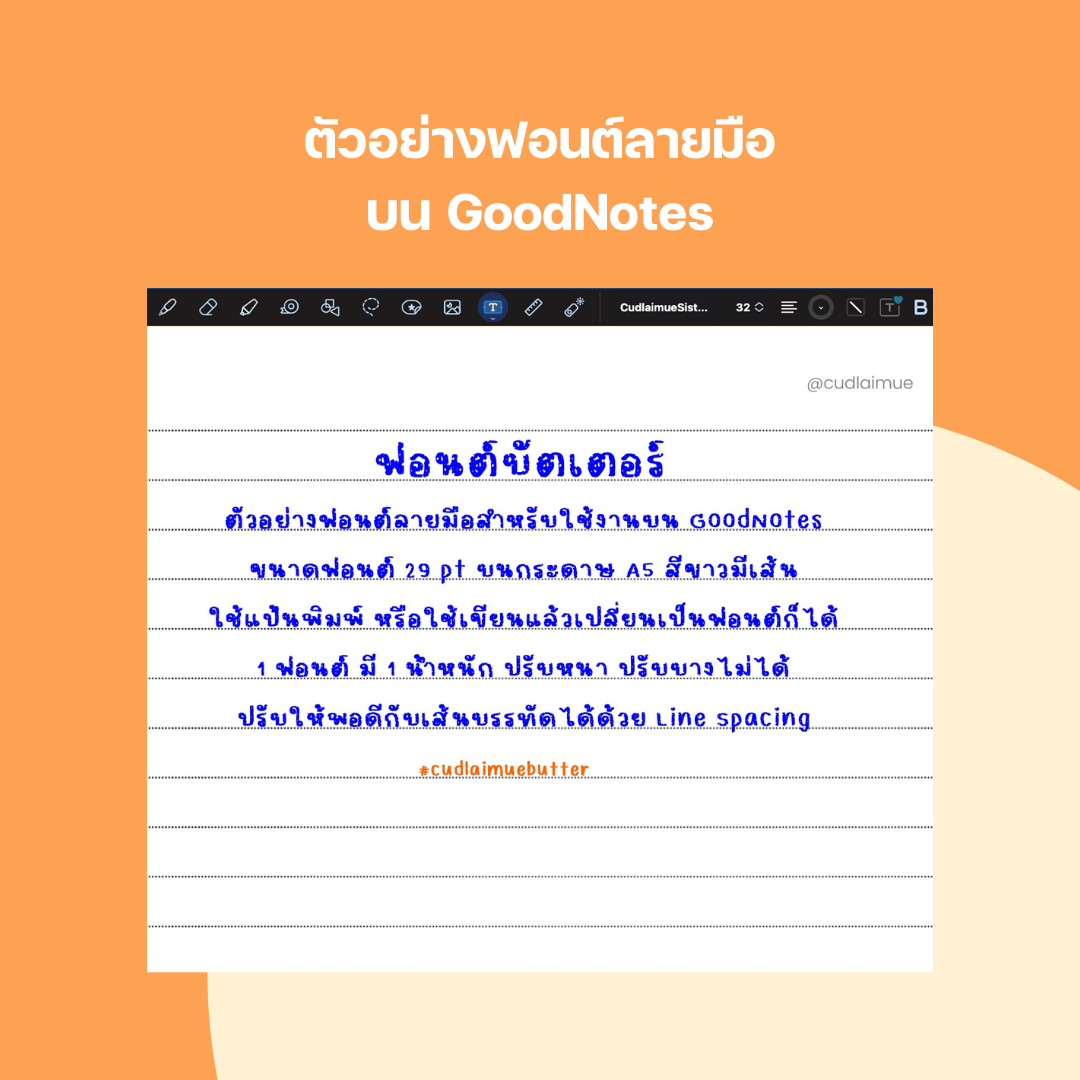 ตัวอย่างฟอนต์ลายมือ
บน GoodNotes
CudlaimueSist... 32 B
@cudlaimue
ฟ่อนต์บัตเตอร์
ตัวอย่างฟ่อนต์ลายมือสำหรับใช้งานบน GoodNotes
ขนาดฟ่อนต์ 29 pt บนกระดาษ A5 สีขาวมีเส้น
ใช้แป้นพิมพ์ หรือใช้เขียนแล้วเปลี่ยนเป็นฟ่อนต์ก็ได้
1 ฟ่อนต์ มี 1 น้ำหนัก ปรับหนา ปรับบางไม่ได้
ปรับให้พอดีกับเส้นบรรทัดได้ด้วย Line spacing
#cudlaimuebutter